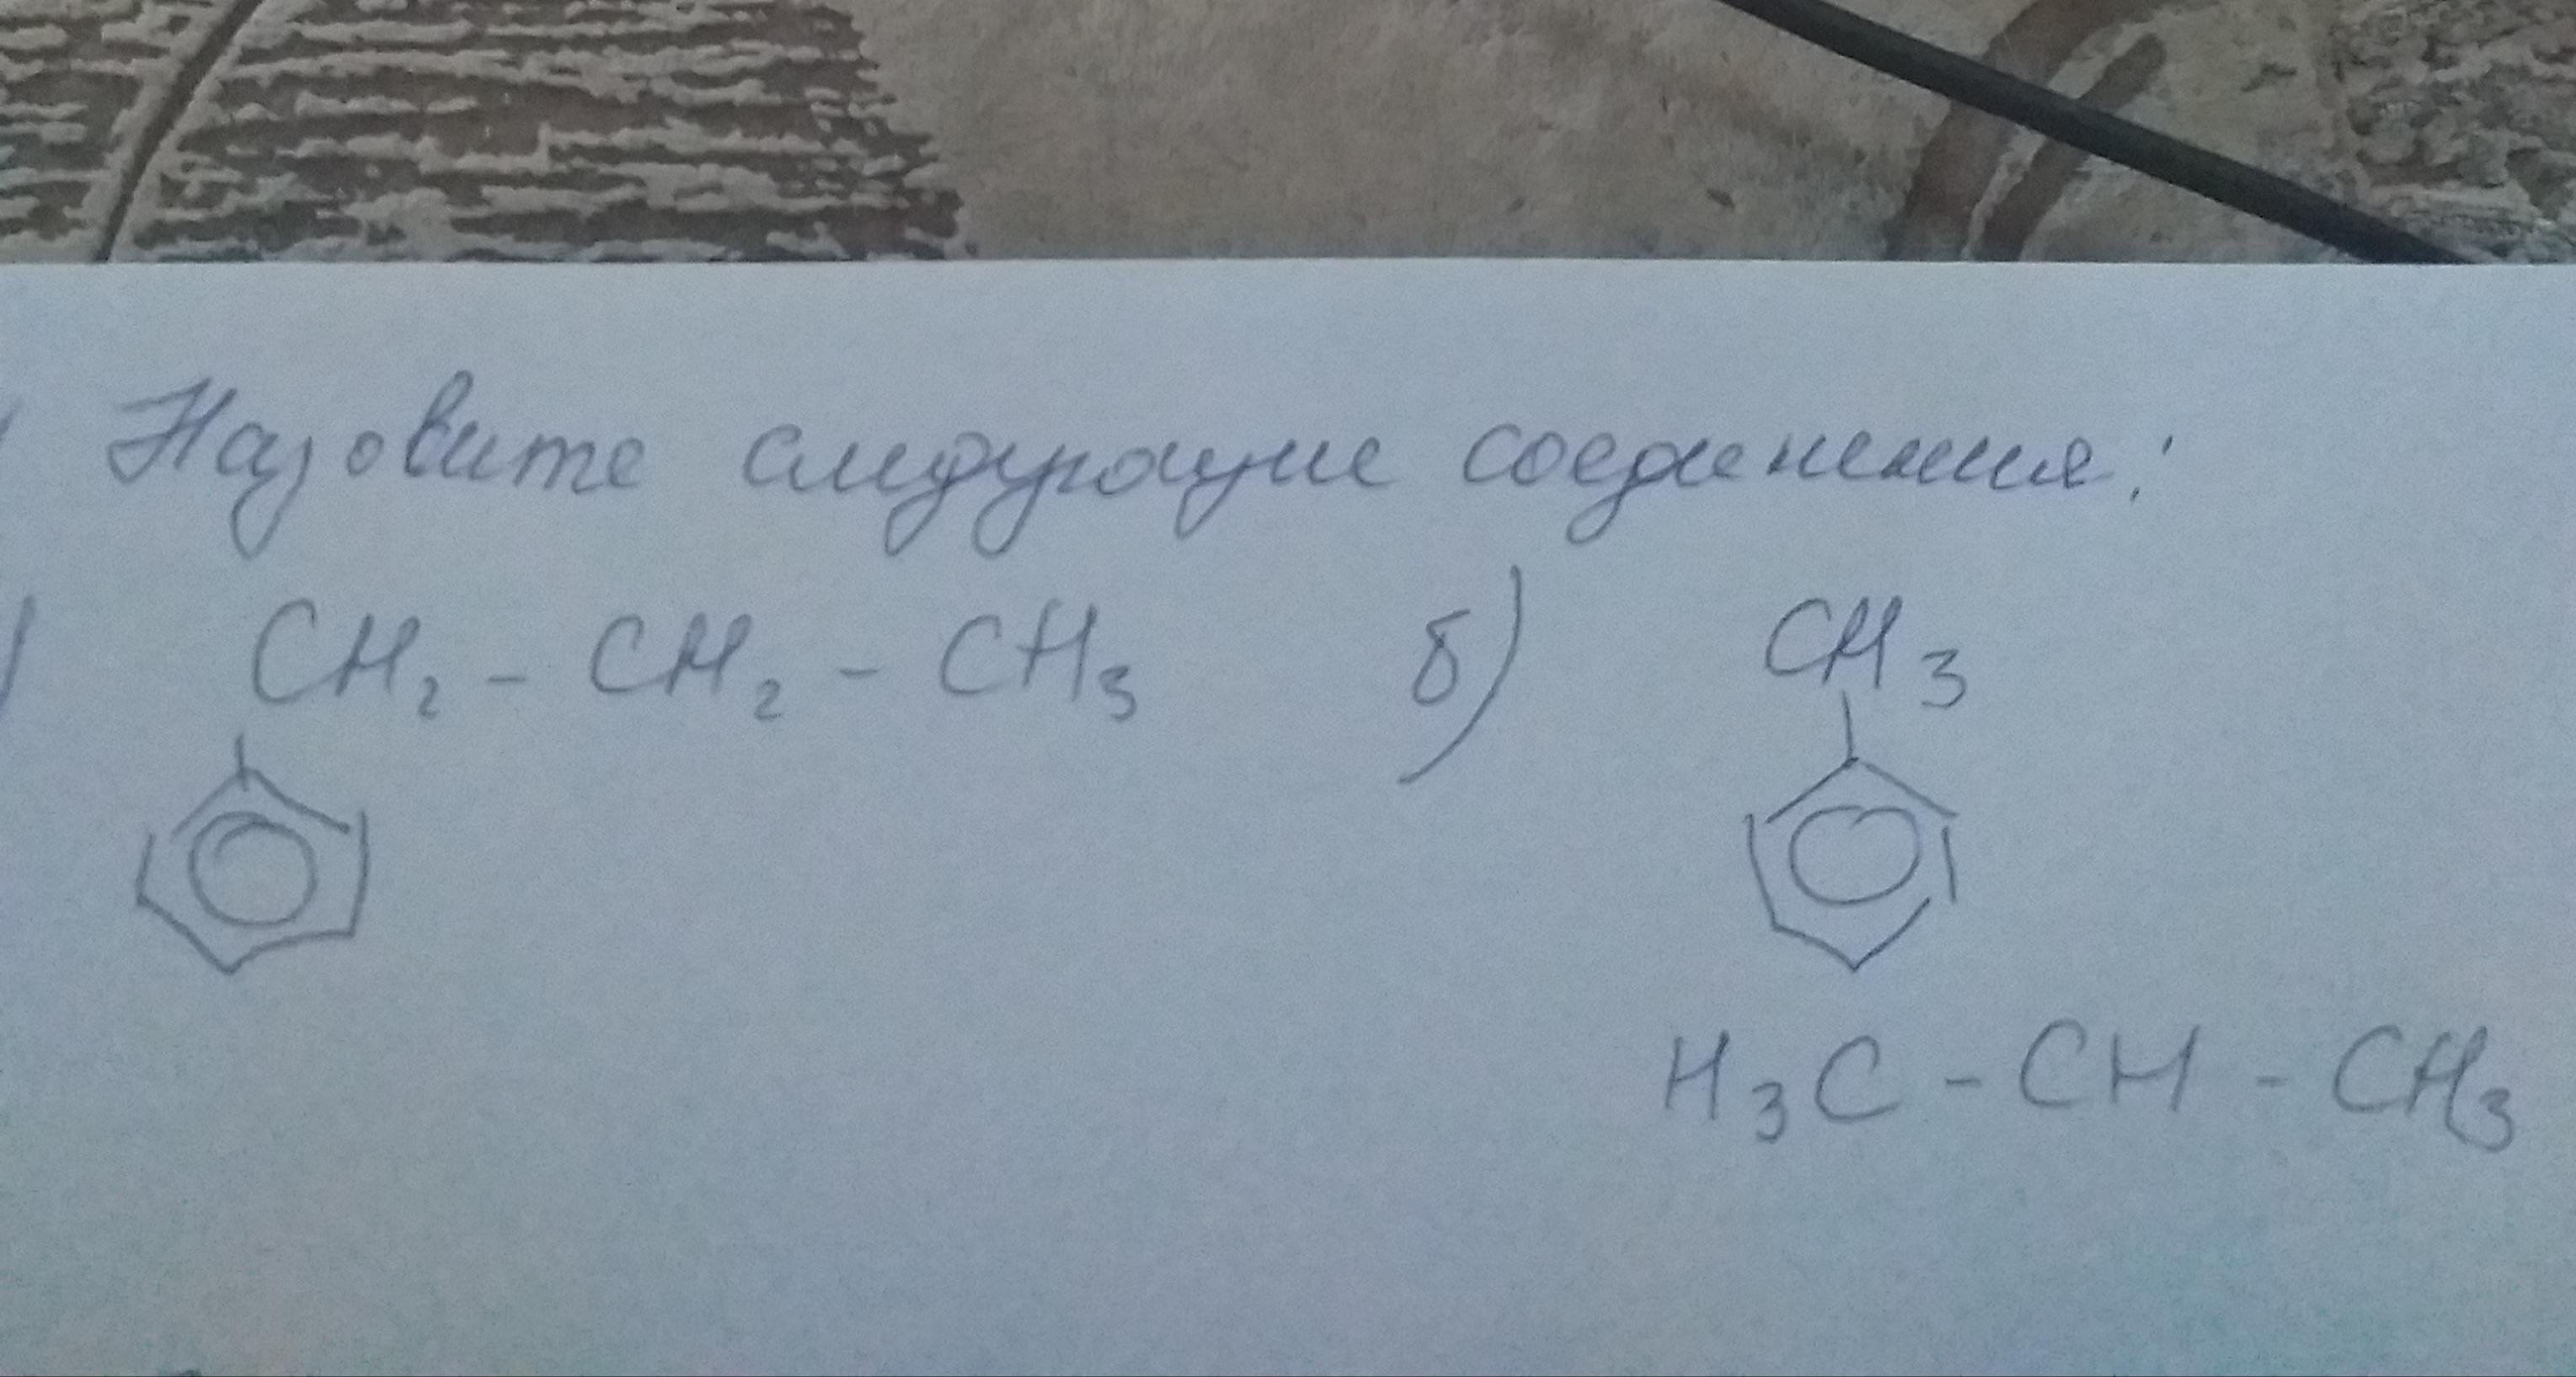 Назовите следующие соединения:
) CH₂ - CH₂ - CH₃ б) CH₃
H₃C - CH - CH₃